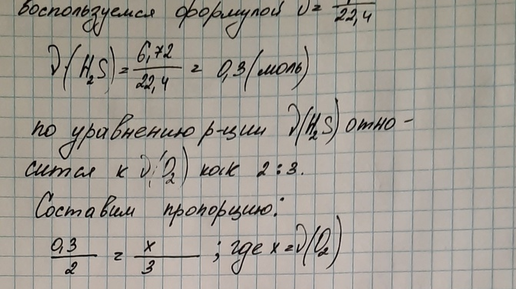 воспользуемся формулой ν = 22,4
ν(H₂S) = 6,72 / 22,4 = 0,3 (моль)
по уравнению р-ции ν(H₂S) отно-
сится к ν(O₂) как 2:3.
Составим пропорцию:
0,3 / 2 = x / 3 ; где x = ν(O₂)